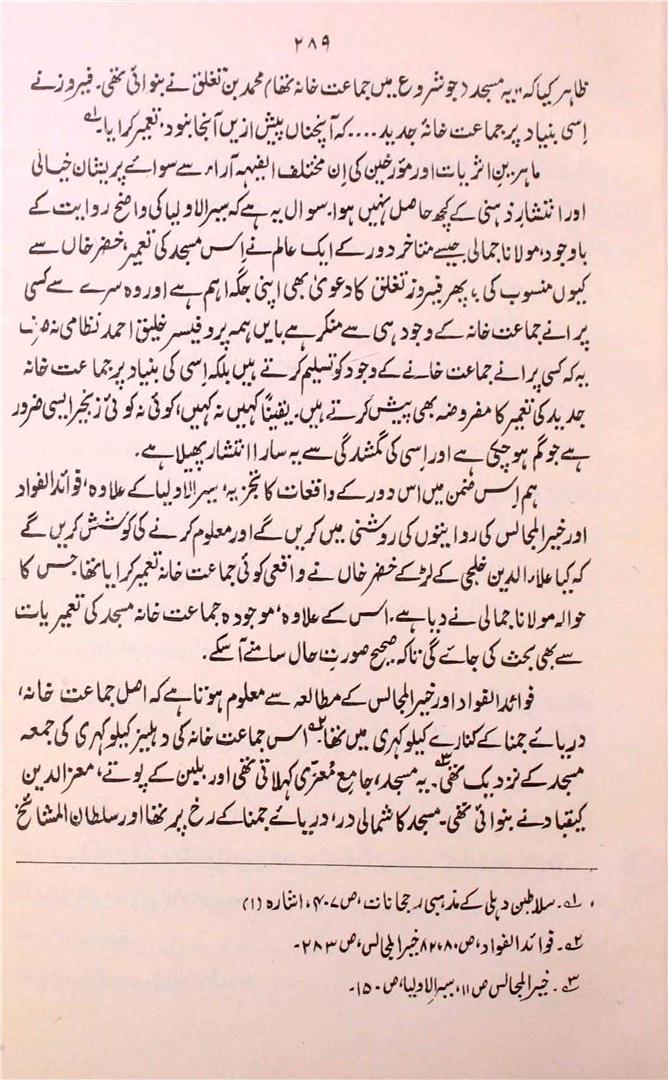 ۲۸۹
ظاہر کیا کہ "یہ مسجد (جو شروع میں جماعت خانہ تھا) محمد بن تغلق نے بنوائی تھی۔ فیروز نے
اِسی بنیاد پر جماعت خانۂ جدید .... کہ آنچناں پیش ازیں آنجا نبود، تعمیر کرایا۔۱؎
ماہرینِ اثریات اور مؤرخین کی اِن مختلف الفہمہ آراء سے سوائے پریشان خیالی
اور انتشارِ ذہنی کے کچھ حاصل نہیں ہوا۔ سوال یہ ہے کہ سیرالاولیا کی واضح روایت کے
باوجود، مولانا جمالی جیسے متاخر دور کے ایک عالم نے اِس مسجد کی تعمیر، خضر خاں سے
کیوں منسوب کی؟ پھر فیروز تغلق کا دعویٰ بھی اپنی جگہ اہم ہے اور وہ سرے سے کسی
پرانے جماعت خانہ کے وجود ہی سے منکر ہے بایں ہمہ پروفیسر خلیق احمد نظامی نہ صرف
یہ کہ کسی پرانے جماعت خانے کے وجود کو تسلیم کرتے ہیں بلکہ اِسی کی بنیاد پر جماعت خانہ
جدید کی تعمیر کا مفروضہ بھی پیش کرتے ہیں۔ یقیناً کہیں نہ کہیں، کوئی نہ کوئی زنجیر ایسی ضرور
ہے جو گم ہو چکی ہے اور اِسی کی گمشدگی سے یہ سارا انتشار پھیلا ہے۔
ہم اِس ضمن میں اس دور کے واقعات کا تجزیہ، سیرالاولیا کے علاوہ، فوائدالفواد
اور خیرالمجالس کی روایتوں کی روشنی میں کریں گے اور معلوم کرنے کی کوشش کریں گے
کہ کیا علاءالدین خلجی کے لڑکے خضر خاں نے واقعی کوئی جماعت خانہ تعمیر کرایا تھا جس کا
حوالہ مولانا جمالی نے دیا ہے۔ اس کے علاوہ، موجودہ جماعت خانہ مسجد کی تعمیریات
سے بھی بحث کی جائے گی تاکہ صحیح صورتِ حال سامنے آسکے۔
فوائدالفواد اور خیرالمجالس کے مطالعہ سے معلوم ہوتا ہے کہ اصل جماعت خانہ،
دریائے جمنا کے کنارے کیلوکہری میں تھا۲؎۔ اس جماعت خانہ کی دہلیز کیلوکہری کی جمعہ
مسجد کے نزدیک تھی۳؎۔ یہ مسجد، جامع مُعزی کہلاتی تھی اور بلبن کے پوتے، معزالدین
کیقباد نے بنوائی تھی۔ مسجد کا شمالی در، دریائے جمنا کے رخ پر تھا اور سلطان المشائخ
۱؎۔ سلاطین دہلی کے مذہبی رجحانات، ص ۴۰۷، اشارہ (۱)
۲؎۔ فوائدالفواد، ص ۸۰، ۸۲ خیرالمجالس، ص ۲۸۳۔
۳؎۔ خیرالمجالس ص ۱۱، سیرالاولیا، ص ۱۵۰۔